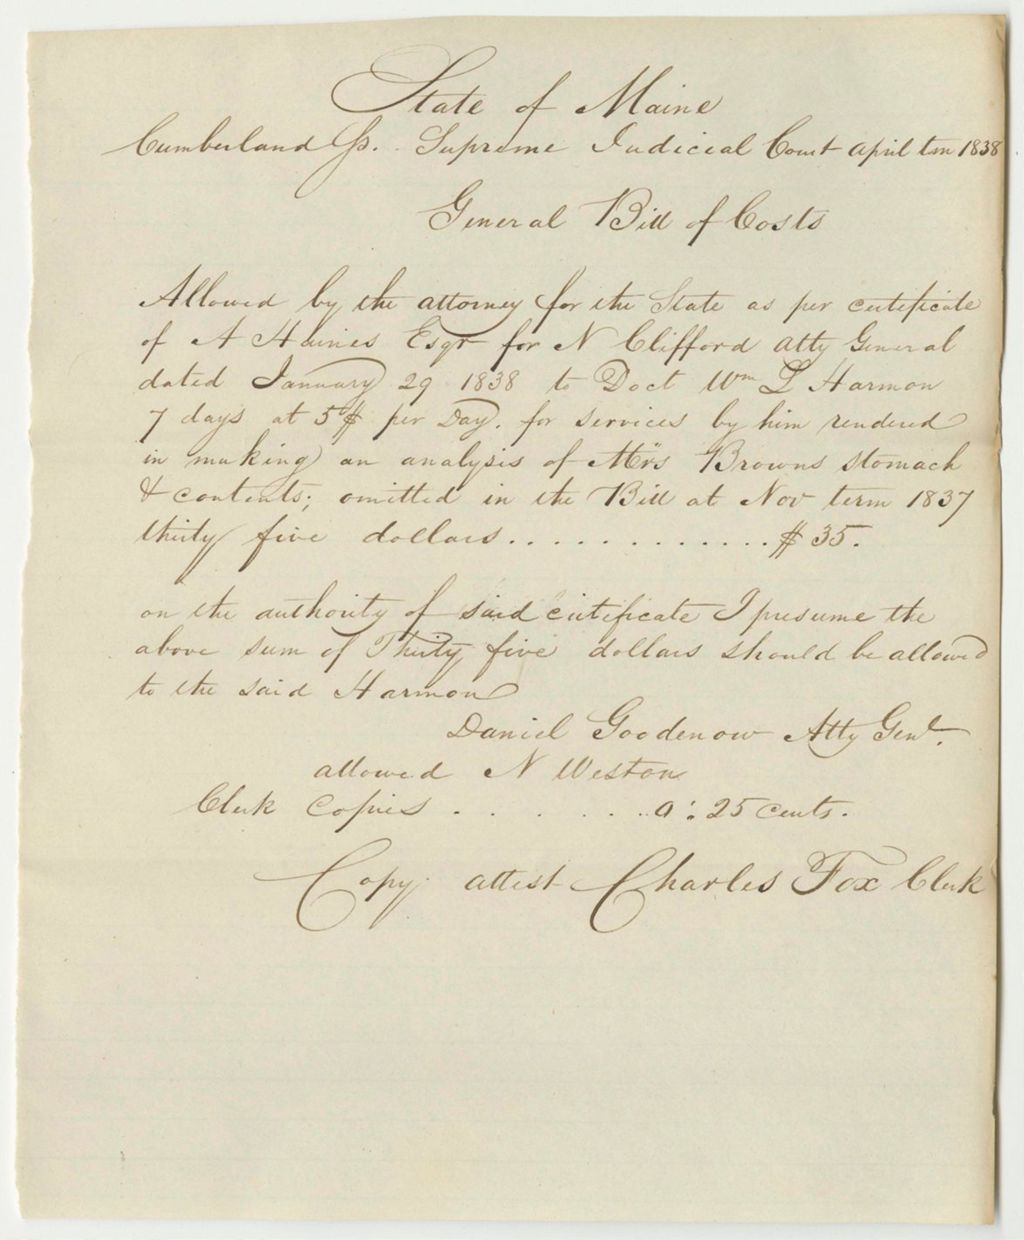 State of Maine
Cumberland Ss. Supreme Judicial Court April tm 1838
General Bill of Costs
Allowed by the attorney for the State as per certificate
of A Haines Esqr for N Clifford Atty General
dated January 29 1838 to Doct Wm L Harmon
7 days at 5$ per Day. for services by him rendered
in making an analysis of Mrs Browns stomach
& contents; omitted in the Bill at Nov term 1837
thirty five dollars.............$35.
on the authority of said certificate I presume the
above sum of Thirty five dollars should be allowed
to the said Harmon
Daniel Goodenow Atty Genl.
allowed N Weston
Clerk Copies . . . . . . . 0:25 cents.
Copy. attest Charles Fox Clerk